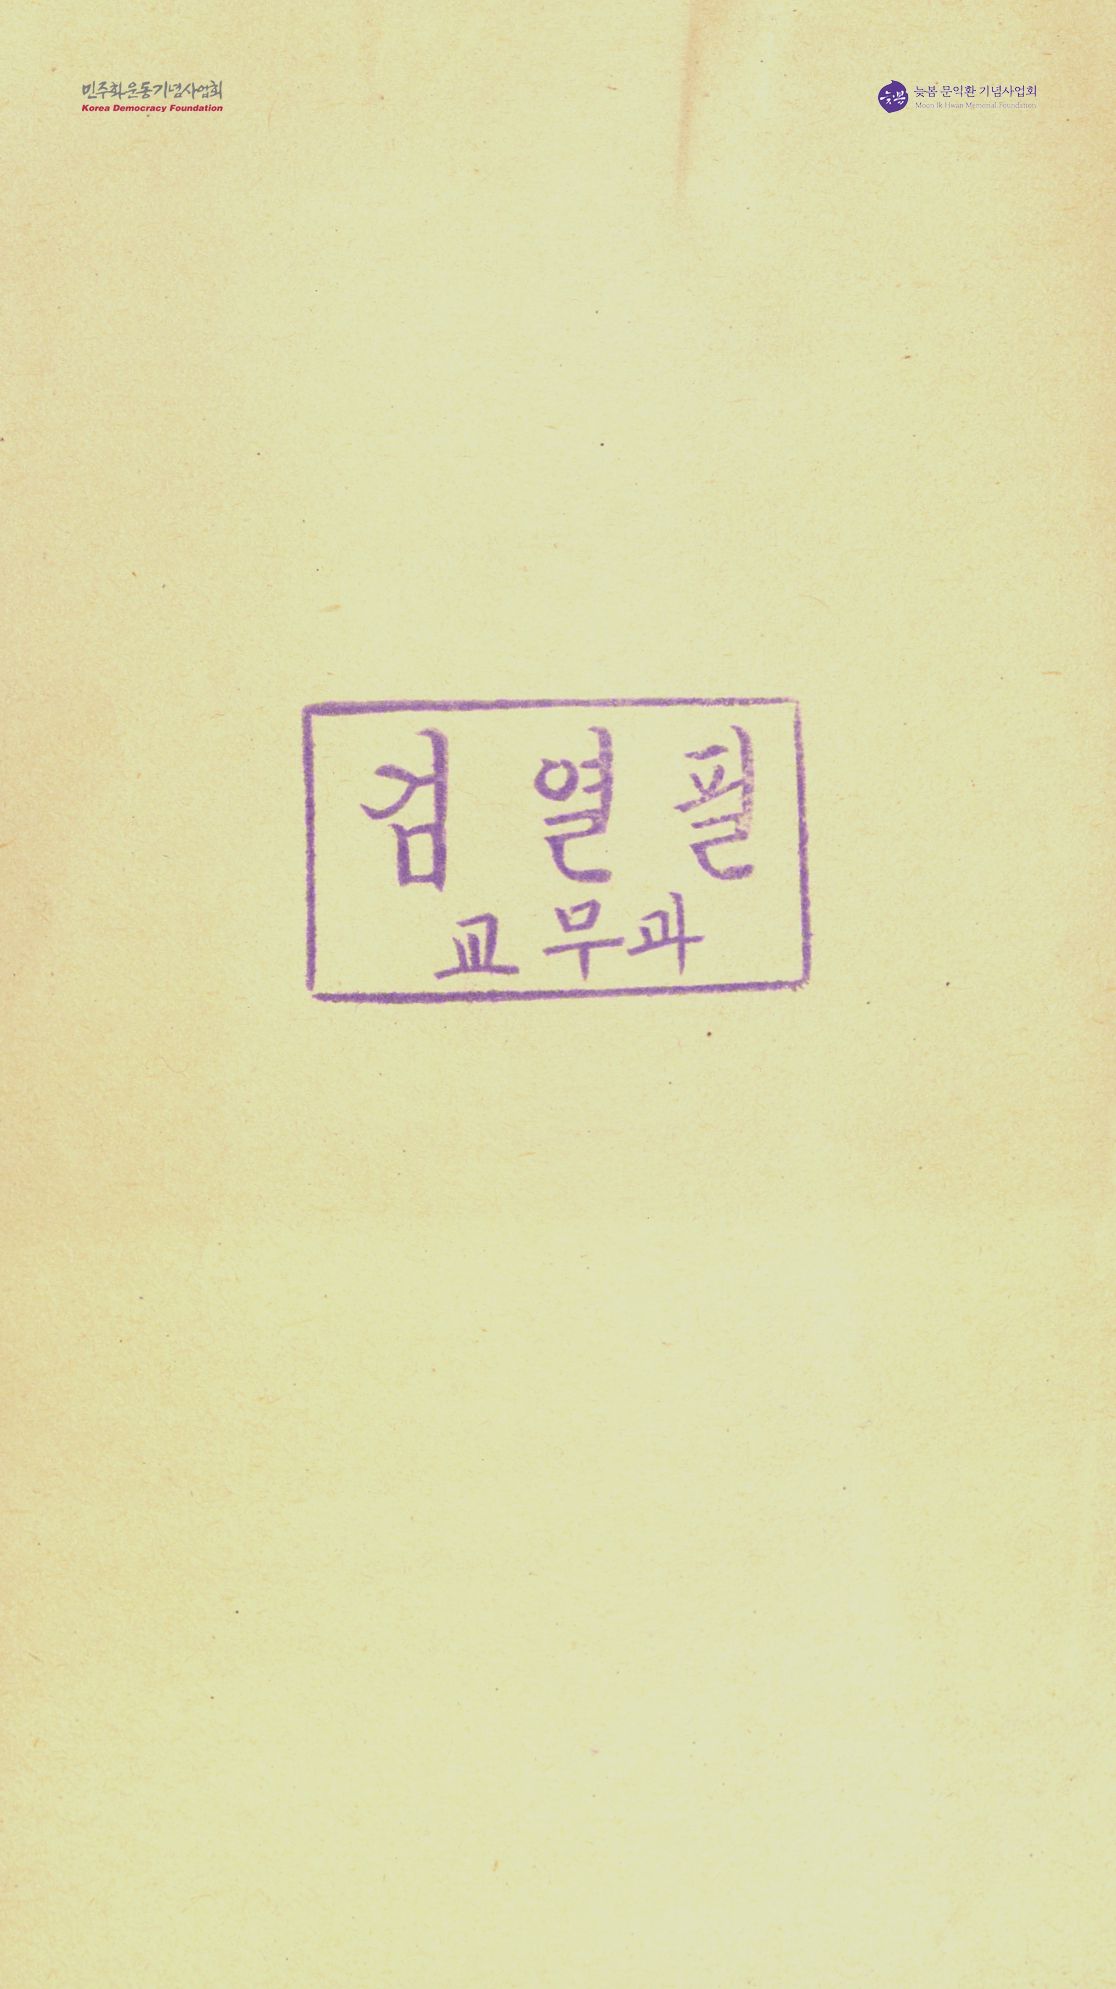 민주화운동기념사업회
Korea Democracy Foundation
늦봄
늦봄 문익환 기념사업회
Moon Ik Hwan Memorial Foundation
검 열 필
교 무 과